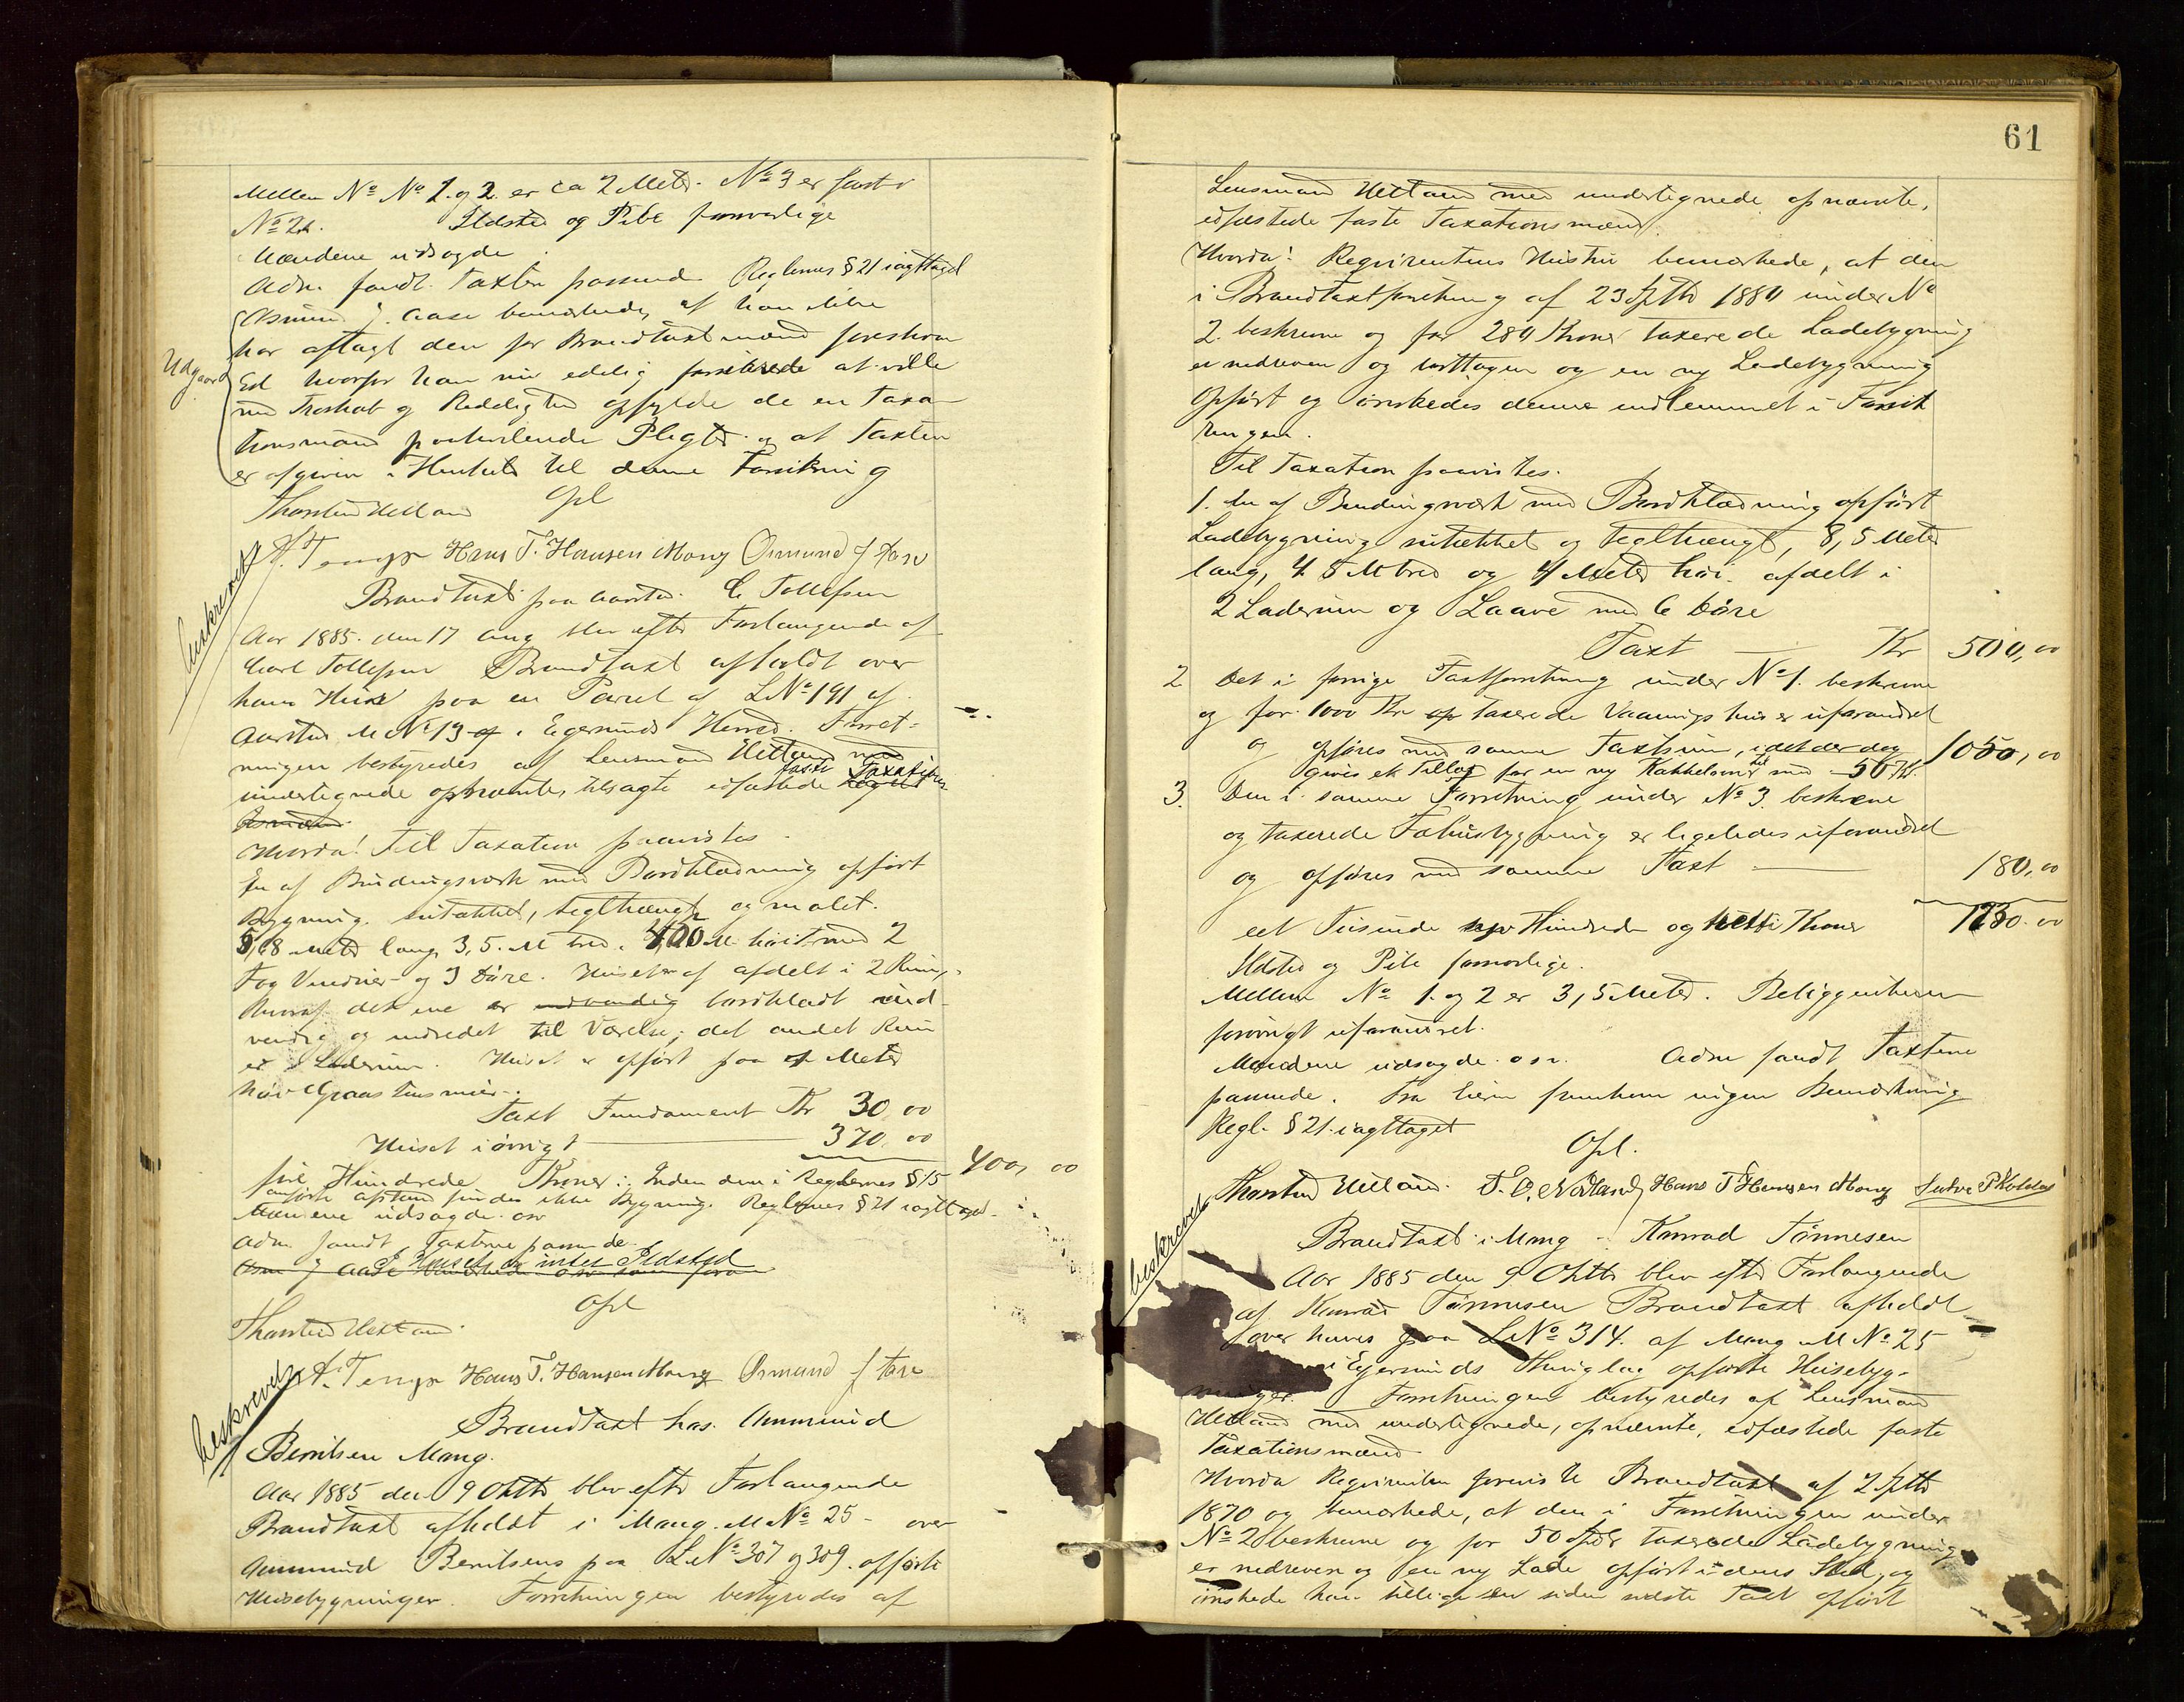 Mellem No No 1. og 2. er ca 2 Meter. No 3 er fast i
No 2. Ildsted og Pibe forsvarlige
Mændene udsagde
Adm fandt Taxten passende Reglernes § 21 iagttaget
Udgaar
Osmund J. Aase bemærkede, at han ikke
har aflagt den for Brandtaxtmænd foreskrevne
Ed hvorfor han nu edelig forsikrede at ville
med Troskab og Redelighed opfylde de en Taxa-
tionsmand paahvilende Pligter og at Taxten
er afgiven i Henhold til denne Forsikring
Opl
Thorsten Hetland
A. Tengs Hans T. Hansen Mong Osmund J Aase
beskrevet
Brandtaxt paa Aarstad. C. Tollefsen
Aar 1885. den 17 Aug blev efter Forlangende af
Carl Tollefsen Brandtaxt afholdt over
hans Huse paa en Parcel af LNo 191 af
Aarstad MNo 13 i Egersunds Herred. Forret-
ningen bestyredes af Lensmand Hetland med
undertegnede opnævnte, tilsagte edfæstede faste Taxations-
mænd.
Hvorda! Til Taxation paavistes.
En af Bindingsværk med Bordklædning opført
Bygning. sutækket, teglhængt og malet.
5,68 Meter lang 3,5. M bred. 4,20 M. høit med 2
Fag Vinduer og 3 Døre. Huset er afdelt i 2 Rum,
hvoraf det ene er indvendig bordklædt ind-
vendig og indredet til Værelse; det andet Rum
er Laderum. Huset er opført paa et Meter
høi Graastensmur.
Taxt Fundament Kr 30,00
Huset iøvrigt 370,00
400,00
fire Hundrede Kroner. Inden den i Reglernes § 15
anførte afstand findes ikke Bygning. Reglernes § 21 iagttaget.
Mændene udsagde osv
Adm fandt Taxterne passende.
I Huset er intet Ildsted
Opl
Thorsten Hetland.
A. Tengs Hans T. Hansen Mong Osmund J Aase
beskrevet
Brandtaxt hos Ammund
Berntsen Mong.
Aar 1885 den 9 Oktb blev efter Forlangende
Brandtaxt afholdt i Mong. MNo 25 - over
Ammund Berntsens paa LNo 307 og 309. opførte
Husebygninger. Forretningen bestyredes af
61
Lensmand Hetland med undertegnede opnævnte,
edfæstede faste Taxationsmænd.
Hvorda! Reqvirentens Hustru bemærkede, at den
i Brandtaxtforretning af 23 Septb 1880 under No
2. beskrevne og for 280 Kroner taxerede Ladebygning
er nedreven og borttagen og en ny Ladebygning
opført og ønskedes denne indlemmet i Forsik
ringen.
Til Taxation paavistes.
1. En af Bindingsværk med Bordklædning opført
Ladebygning sutækket og teglhængt, 8,5 Meter
lang, 4.5 M bred og 4 Meter høi. afdelt i
2 Laderum og Laave med 6 Døre
Taxt - Kr 500,00
2 Det i forrige Taxtforretning under No 1. beskrevne
og for 1000 Kr taxerede Vaaningshus er uforandret
og opføres med samme Taxtsum, idet der dog
gives et Tillæg for en ny Kakkelovn med 50 Kr. 1050,00
3. Den i samme Forretning under No 3. beskrevne
og taxerede Fæhusbygning er ligeledes uforandret
og opføres med samme Taxt 180,00
eet Tusinde syv Hundrede og tretti Kroner 1730.00
Ildsted og Pibe forsvarlige.
Mellem No 1. og 2 er 3,5 Meter. Beliggenheden
forøvrigt uforandret.
Mændene udsagde osv. Adm fandt Taxterne
passende. Fra hiin fremkom ingen Bemærkning
Regl. § 21. iagttaget
Opl.
Thorsten Hetland. Hans T Hansen Mong
beskrevet
Brandtaxt i Mong - Konrad Tønnesen
Aar 1885 den 9 Oktb blev efter Forlangende
af Konrad Tønnesen Brandtaxt afholdt
over hans paa LNo 314. af Mong MNo 25
i Egersunds Thinglag opførte Husebyg-
ninger. Forretningen bestyredes af Lensmand
Hetland med undertegnede, opnævnte, edfæstede faste
Taxationsmænd
Hvorda Reqvirenten foreviste Brandtaxt af 2 Septb
1870 og bemærkede, at den i Forretningen under
No 2 beskrevne og for 50 Spdlr taxerede Ladebygning
er nedreven og en ny Lade opført i dens Sted, og
ønskede han tillige den siden sidste Taxt opført